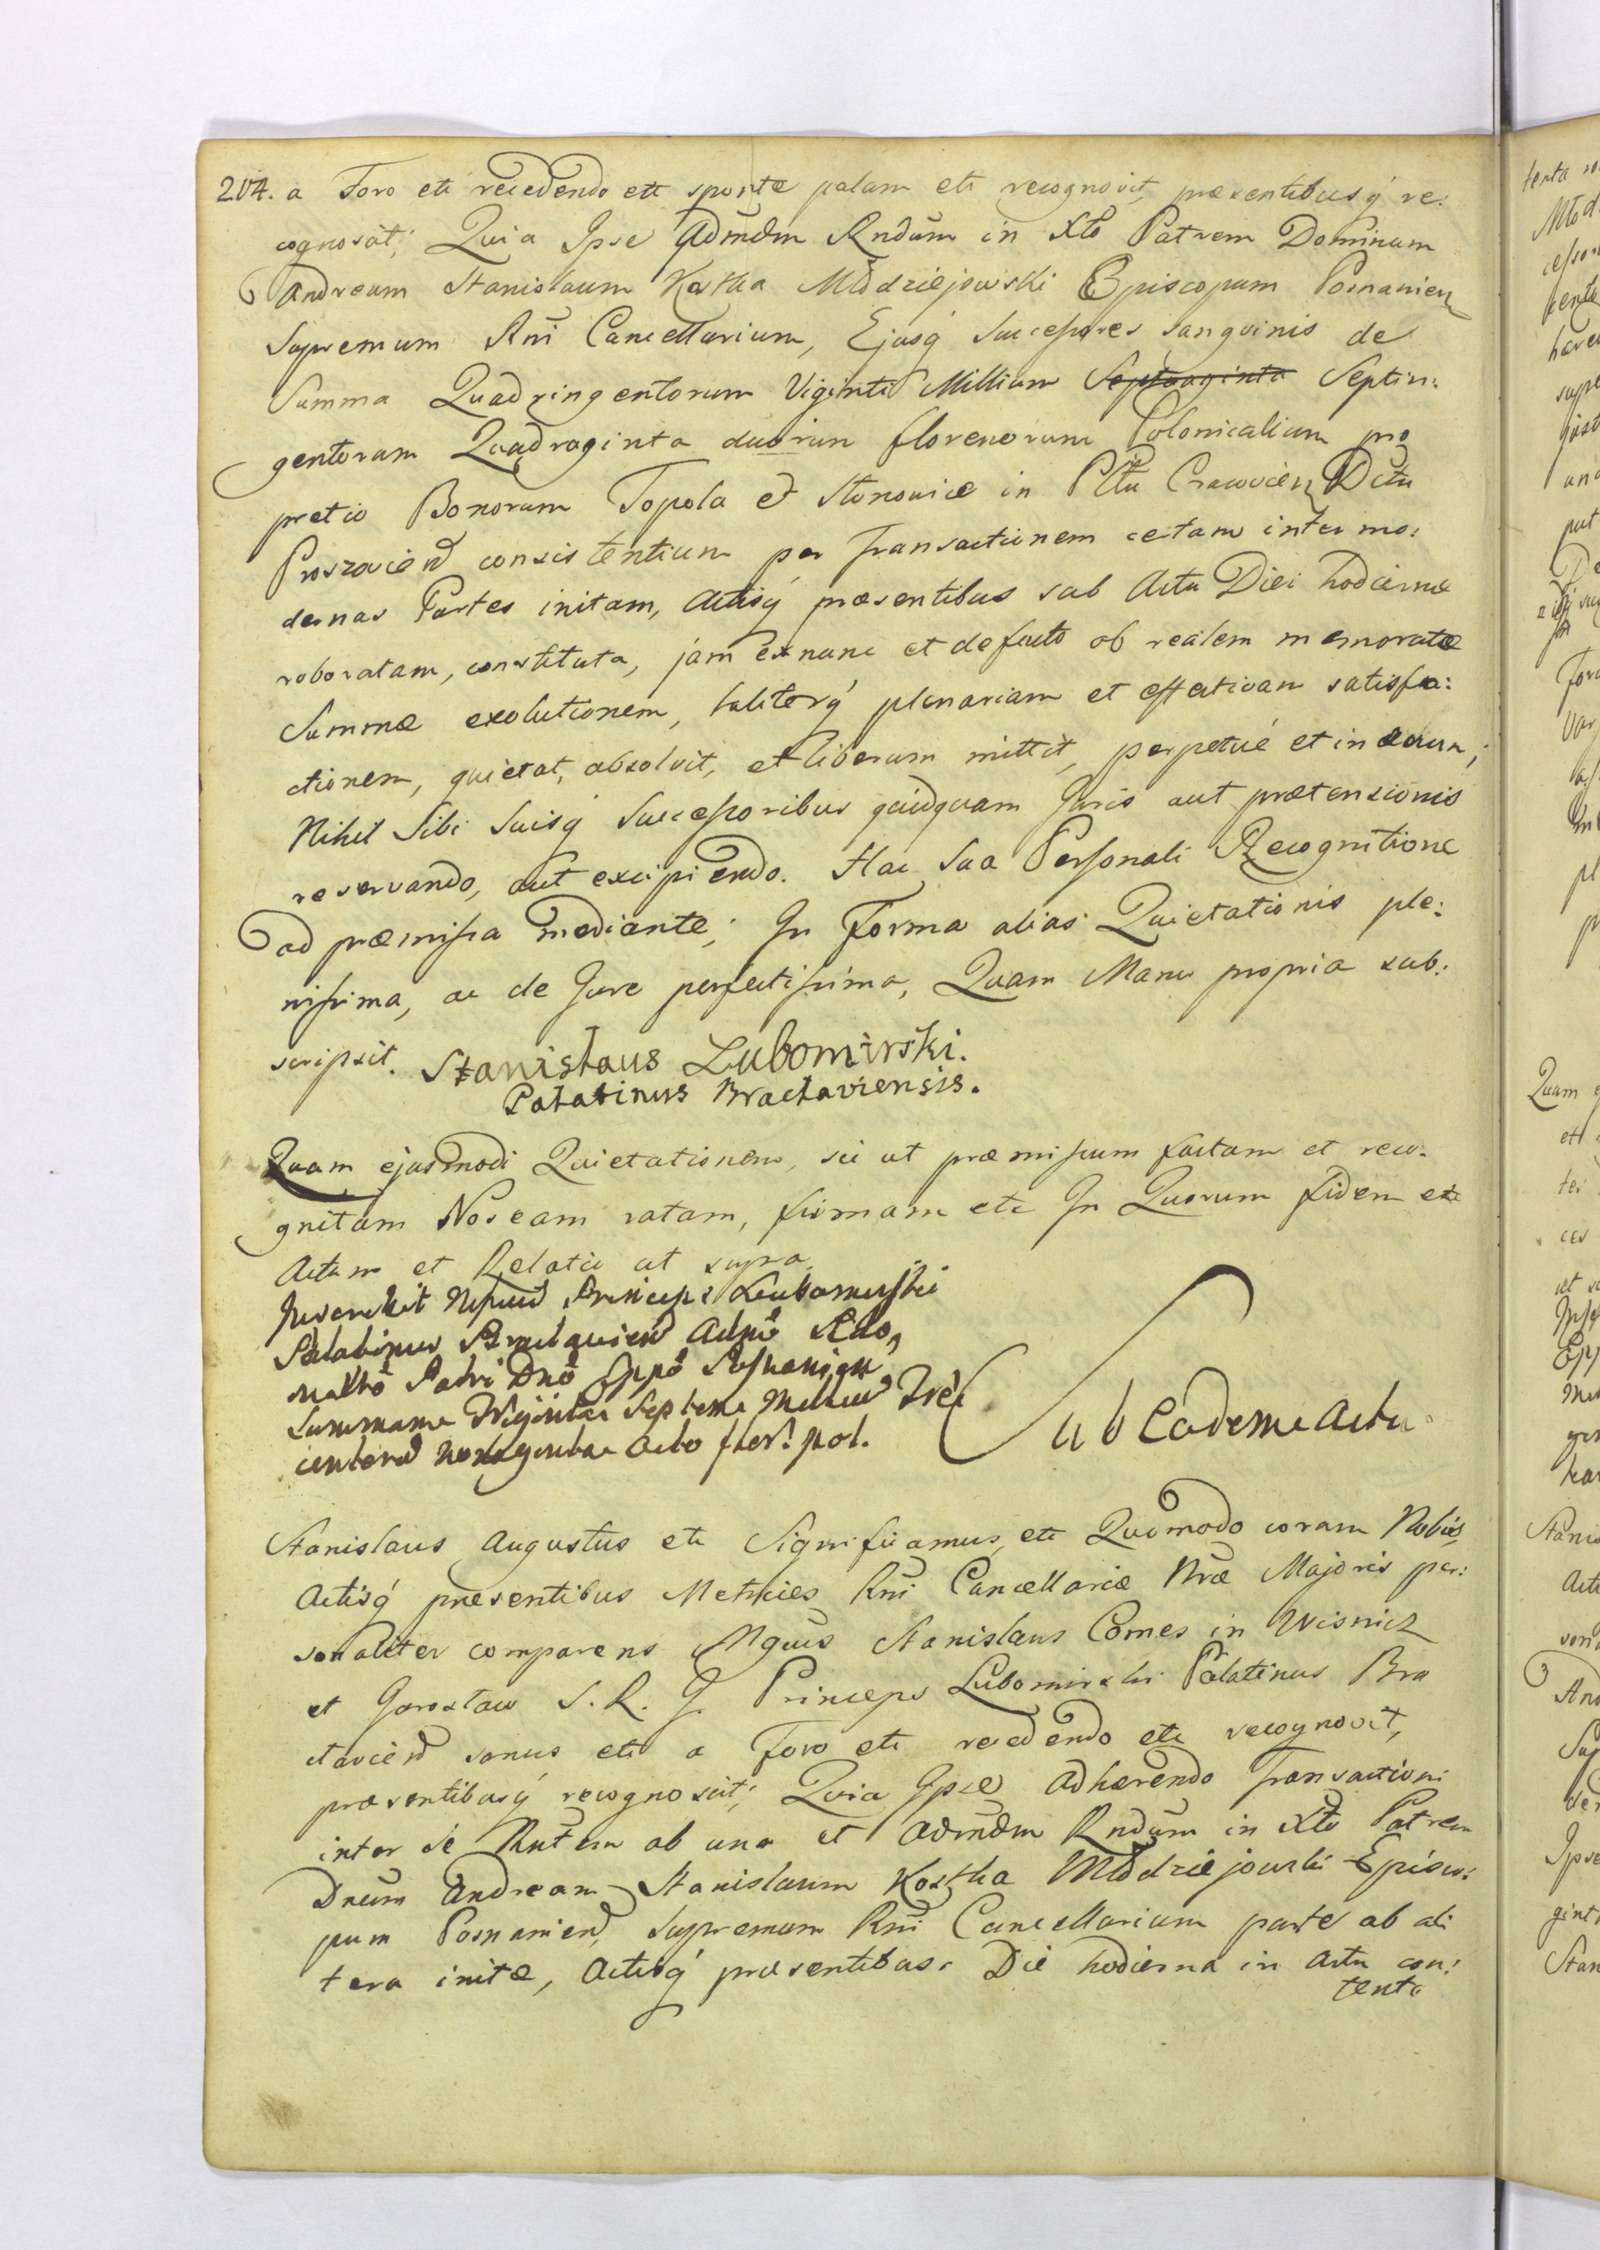 204. a Foro etc recedendo etc sponte palam etc recognovit, præsentibusq́ re:
cognoscit; Quia Ipse Admdm Rndum in Xto Patrem Dominum
Andream Stanislaum Kostka Młodziejowski Episcopum Posnanien
Supremum Rni Cancellarium, Ejusq́ Successores sanguinis de
Summa Quadringentorum Viginti Millium Septuaginta Septin:
gentorum Quadraginta duorum florenorum Polonicalium pro
pretio Bonorum Topola et Stonowice in Pltu Cracovien Dctu
Proszovien consistentium per Transactionem certam inter mo:
dernas Partes initam, Actisq́ præsentibus sub Actu Diei hodiernæ
roboratam, constituta, jam exnunc et defacto ob realem memoratæ
Summæ exolutionem, taliterq́ plenariam et effectivam satisfa:
ctionem, quietat, absolvit, et liberum mittit, perpetue et in ævum;
Nihil Sibi Suisq́ Successoribus quidquam Juris aut prætensionis
reservando, aut excipiendo. Hac Sua Personali Recognitione
ad præmissa mediante; In Forma alias Quietationis ple:
nissima, ac de Jure perfectissima, Quam Manu propria sub:
scripsit. Stanislaus Lubomirski.
Palatinus Braclaviensis.
Quam ejusmodi Quietationem, sic ut præmissum factam et reco:
gnitam Nos eam ratam, firmam etc In Quorum fidem etc
Actum et Relatio ut supra
Princeps Lubomirski
Palatinus
Patri Dno Eppo Posnanien
Summam Viginti Septem Millium
centorum nonaginta octo flor. pol.
Sub Eodem Actu
Stanislaus Augustus etc Significamus, etc Quomodo coram Nobis,
Actisq́ præsentibus Metrices Rni Cancellariæ Nræ Majoris per:
sonaliter comparens Mgcus Stanislaus Comes in Wisnicz
et Jaroslaw S. R. J. Princeps Lubomirski Palatinus Bra
clavien sanus etc a Foro etc recedendo etc recognovit,
præsentibusq́ recognoscit; Quia Ipse adhærendo Transactioni
inter se Rntem ab una et Admdm Rndum in Xto Patrem
Dnum Andream Stanislaum Kostka Młodziejowski Episco:
pum Posnanien, Supremum Rni Cancellarium parte ab al
tera initæ, Actisq́ præsentibus Die hodierna in Actu con:
tenta